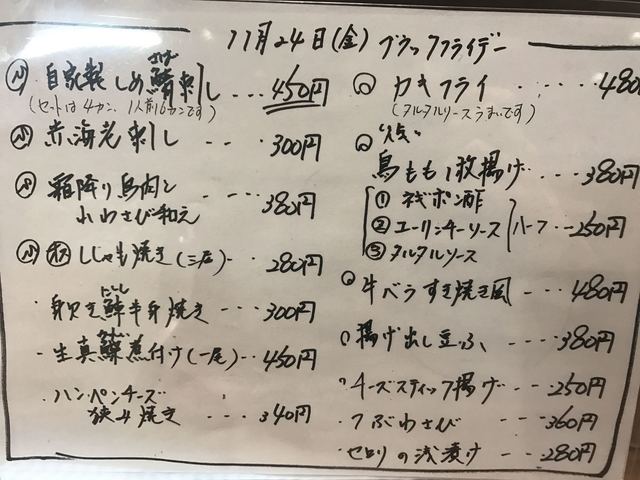 11月24日(金) ブラックフライデー
自家製しめ鯖刺し... 450円
さば
(セットは4カン、1人前16カンです)
赤海老刺し... 300円
霜降り鳥肉と
わさび和え ... 380円
ししゃも焼き(三尾)... 280円
身欠き鰊半身焼き... 300円
にしん
生真鰈煮付け(一尾)... 450円
ハンペンチーズ
挟み焼き .... 340円
カキフライ ..... 480
(タルタルソースうまいです)
"人気"
鳥もも1枚揚げ... 380円
① ポン酢
② ユーリンチーソース
③ タルタルソース
ハーフ... 250円
牛バラすき焼き風 --- 480円
揚げ出し豆ふ ... 380円
チーズスティック揚げ... 250円
つぶわさび --- 360円
セロリの浅漬け --- 280円